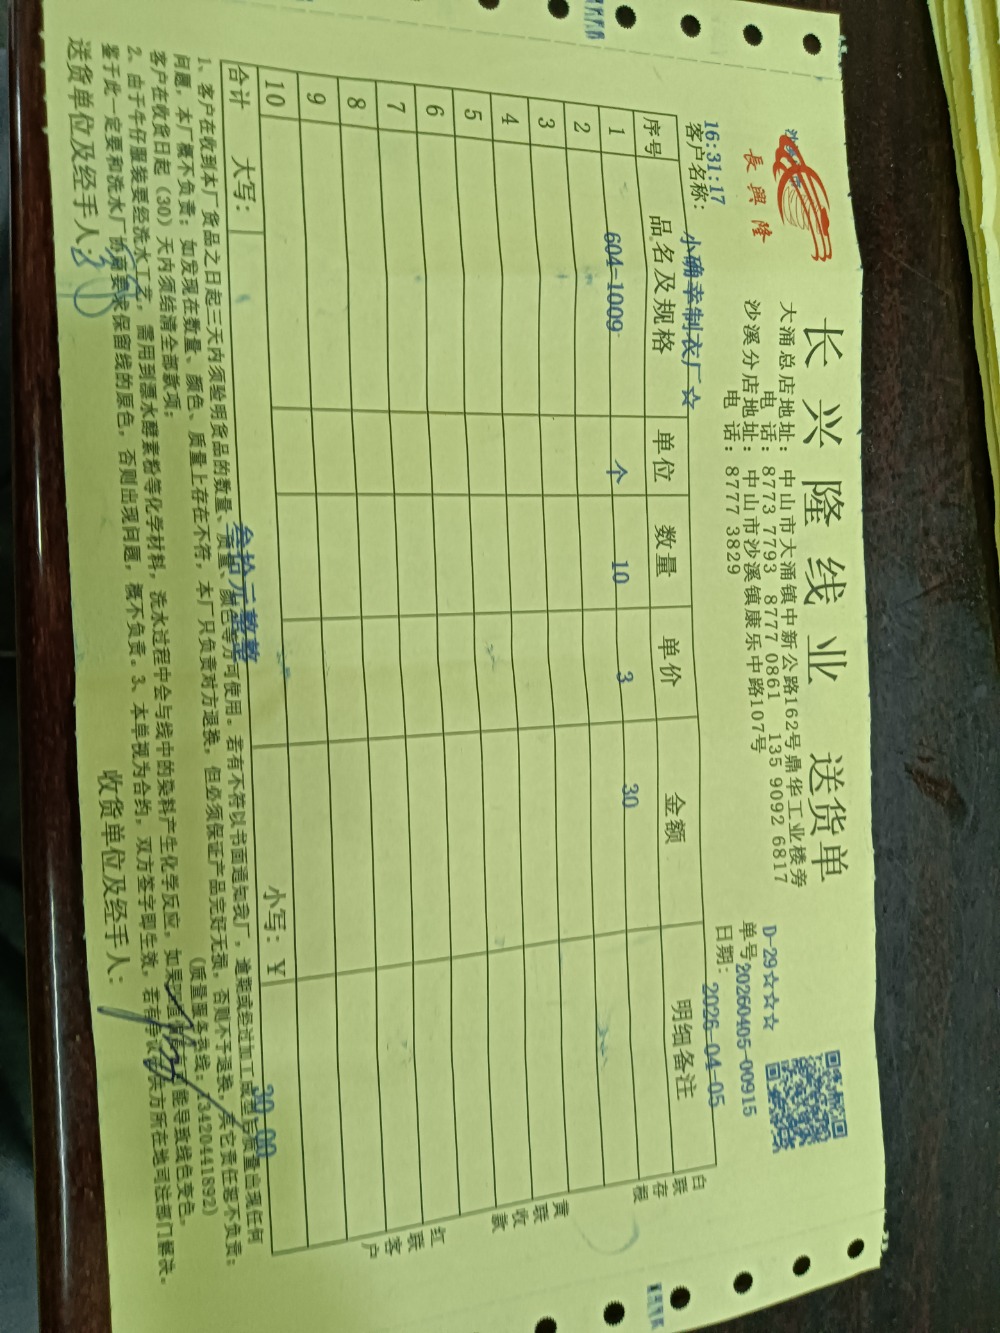 長興隆
长兴隆线业 送货单
大涌总店地址：中山市大涌镇中新公路162号鼎华工业楼旁
电 话：8773 7793 8777 0861 135 9092 6817
沙溪分店地址：中山市沙溪镇康乐中路107号
电 话：8777 3829
D-29☆☆☆
单号 20260405-00915
16:31:17
日期：2026-04-05
客户名称：小确幸制衣厂☆
序号 品名及规格 单位 数量 单价 金额 明细备注
1 604-1009 个 10 3 30
2
3
4
5
6
7
8
9
10
合计 大写：叁拾元整整 小写：￥ 30.00
白联存根
黄联收款
红联客户
1、客户在收到本厂货品之日起三天内须验明货品的数量、质量、颜色等方可使用。若有不符以书面通知我厂，逾期或经过加工成型后质量出现任何
问题，本厂概不负责；如发现在数量、颜色、质量上存在不符，本厂只负责对方退换，但必须保证产品完好无损，否则不予退换，其它责任恕不负责；
客户在收货日起（30）天内须结清全部款项； （质量服务热线：13420441892）
2、由于牛仔服装要经洗水工艺，需用到漂水酵素粉等化学材料，洗水过程中会与线中的染料产生化学反应，如果 能导致线色变色，
鉴于此一定要和洗水厂协商要求保留线的原色，否则出现问题，概不负责。3、本单视为合约，双方签字即生效，若有争议 方所在地司法部门解决。
送货单位及经手人： 收货单位及经手人：